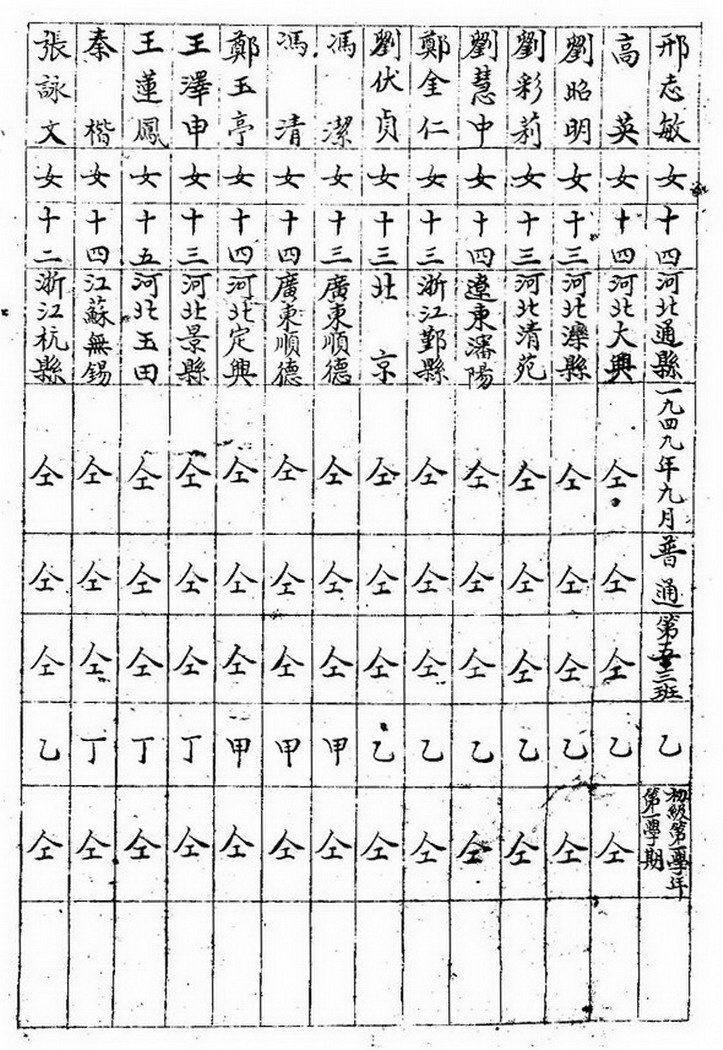 邢志敏 女 十四 河北通縣 一九四九年九月 普通 第五三班 乙 初級第一學年第一學期
高英 女 十四 河北大興 仝 仝 仝 乙 仝
劉昭明 女 十三 河北灤縣 仝 仝 仝 乙 仝
劉彩莉 女 十三 河北清苑 仝 仝 仝 乙 仝
劉慧中 女 十四 遼東瀋陽 仝 仝 仝 乙 仝
鄭金仁 女 十三 浙江鄞縣 仝 仝 仝 乙 仝
劉伏貞 女 十三 北京 仝 仝 仝 乙 仝
馮潔 女 十三 廣東順德 仝 仝 仝 甲 仝
馮清 女 十四 廣東順德 仝 仝 仝 甲 仝
鄭玉亭 女 十四 河北定興 仝 仝 仝 甲 仝
王澤申 女 十三 河北景縣 仝 仝 仝 丁 仝
王蓮鳳 女 十五 河北玉田 仝 仝 仝 丁 仝
秦楷 女 十四 江蘇無錫 仝 仝 仝 丁 仝
張詠文 女 十二 浙江杭縣 仝 仝 仝 乙 仝